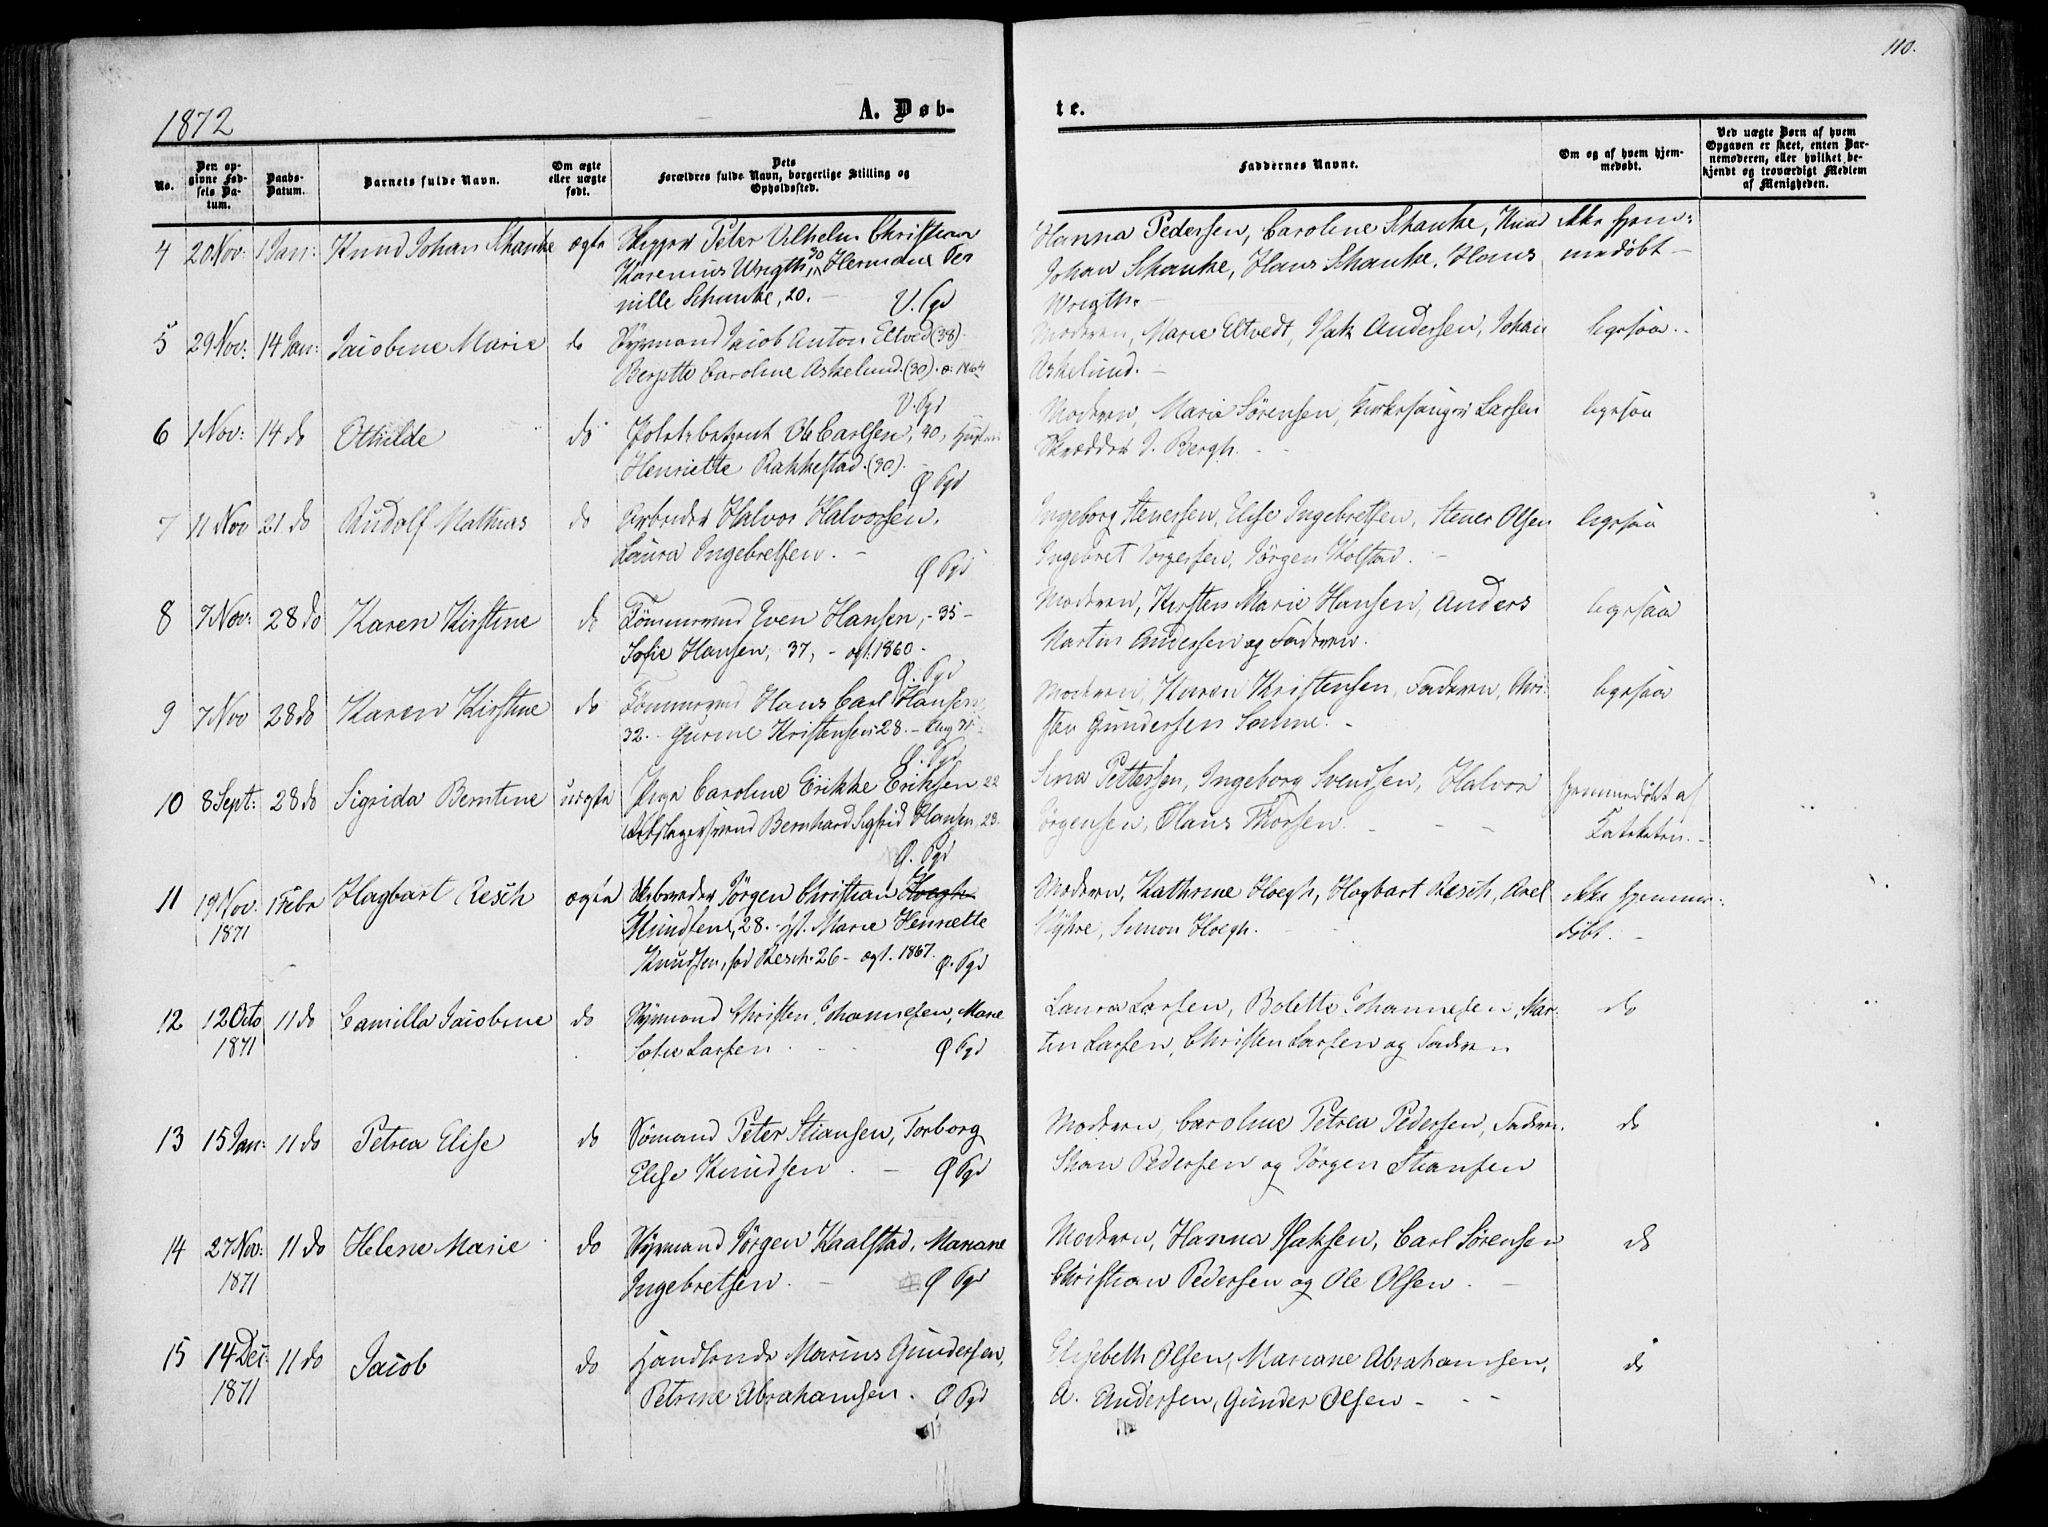 110.
1872
A. Døb-
te.
No.
Den op-
givne Fød-
sels Da-
tum.
Daabs-
Datum.
Barnets fulde Navn.
Om ægte
eller uægte
født.
Dets
Forældres fulde Navn, borgerlige Stilling og
Opholdssted.
Faddernes Navne.
Om og af hvem hjem-
medøbt.
Ved uægte Børn af hvem
Opgaven er skeet, enten Bar-
nemoderen, eller hvilket be-
kjendt og troværdigt Medlem
af Menigheden.
4 20 Nov: 1 Jan: Knud Johan Schanke ægte Skipper Peter Vilhelm Christian
Karenius Wrigth, 30, Hermine Per
nille Schanke, 20. V. Pgd
Hanna Pedersen, Caroline Schanke, Knud
Johan Schanke, Hans Schanke, Hans
Wrigth.
ikke hjem=
medøbt
5 29 Nov: 14 Jan: Jacobine Marie do Styrmand Jacob Anton Eltved (38)
Bergitte Caroline Askelund. (30). æ: 1864
V. Pgd
Moderen, Marie Eltvedt, Isak Andersen, Johan
Askelund.
ligesaa.
6 1 Nov: 14 do Othilde do Ole Carlsen, 30,
Henriette Rakkestad. (30).
Ø Pgd
Moderen, Marie Sørensen, Kirkesanger Larsen
Skrædder J. Bergh.
ligesaa
7 11 Nov 21 do Rudolf Mathias do Arbeider Halvor Halvorsen,
Laura Ingebretsen.
Ø Pgd
Ingeborg Stenersen, Elise Ingebretsen, Stener Olsen
Ingebret Torgersen, Jørgen Kolstad.
ligesaa
8 7 Nov: 28 do Karen Kirstine do Tømmermand Even Hansen, 35
Sofie Hansen, 37, ægt. 1860.
Ø. Pgd
Moderen, Kirsten Marie Hansen, Anders
Martin Andersen og Faderen.
ligesaa
9 7 Nov 28 do Karen Kirstine do Tømmermand Hans Carl Hansen,
32. Gurine Kristensen 28.
Ø. Pgd
Moderen, Karen Kristensen, Faderen, Chri-
sten Gundersen Somme.
ligesaa
10 8 Sept: 28 do Sigrida Berntine uægte Pige Caroline Erikke Eriksen 22
Rebslagersvend Bernhard Sigfrid Hansen, 23.
Ø. Pgd
Sina Pettersen, Ingeborg Svendsen, Halvor
Jørgensen, Claus Thorsen.
hjemmedøbt af
Kateketen.
11 19 Nov. 1871 1 Febr Hagbart Resch ægte Skibsreder Jørgen Christian Hoegh
Knudsen, 28. Marie Henriette
Knudsen, fød Resch. 26 - ægt. 1867. Ø. Pgd
Moderen, Kathrine Hoegh, Hagbart Resch, Axel
Myhre, Simon Hoegh.
ikke hjemme-
døbt.
12 12 Octo 1871 11 do Camilla Jacobine do Styrmand Christen Johannesen, Marie
Sofie Larsen Ø Pgd
Laura Larsen, Bolette Johannesen, Mar-
tin Larsen, Christen Larsen og Faderen
do
13 15 Jan: 11 do Petrea Elise do Sømand Peter Stiansen, Torborg
Elise Knudsen Ø Pgd
Moderen, Caroline Petrea Pedersen, Faderen,
Pedersen og Jørgen Stiansen
do
14 27 Nov: 1871 11 do Helene Marie do Styrmand Jørgen Kaalstad, Mariane
Ingebretsen. Ø Pgd
Moderen, Hanna Isaksen, Carl Sørensen
Christian Pedersen og Ole Olsen
do
15 14 Dec: 1871 11 do Jacob do Handlende Marius Gundersen,
Petrine Abrahamsen. Ø Pgd
Elisebeth Olsen, Mariane Abrahamsen,
A. Andersen, Gunder Olsen
do